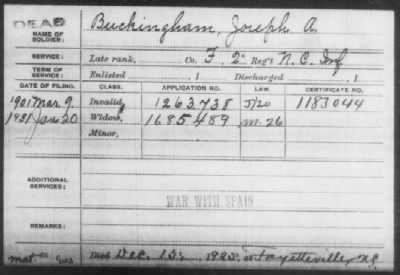 DEAD
NAME OF SOLDIER: Buckingham, Joseph A.
SERVICE: Late rank, Co. F. 2" Reg't N.C. Inf.
TERM OF SERVICE: Enlisted , 1 Discharged , 1
DATE OF FILING. CLASS. APPLICATION NO. LAW. CERTIFICATE NO.
1901 Mar. 9. Invalid, 1263738 J/20 1183044
1921 Jan 20 Widow, 1685489 M-26
Minor,
ADDITIONAL SERVICES:
WAR WITH SPAIN
REMARKS:
Died Dec. 13, 1920, at Fayetteville, N.C.